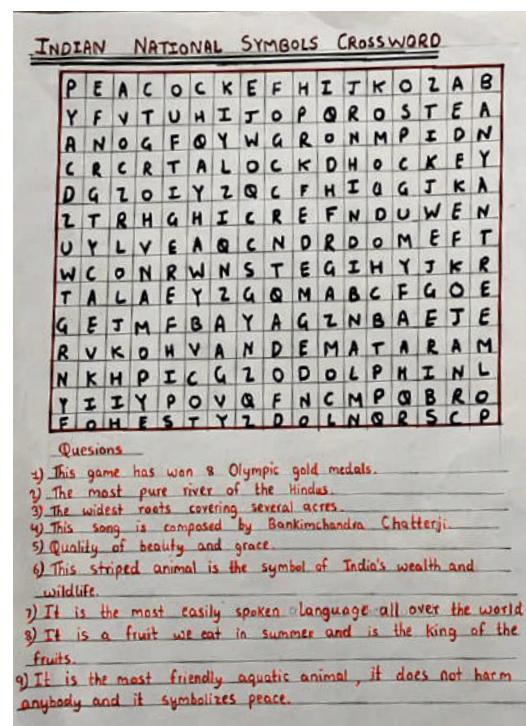 INDIAN NATIONAL SYMBOLS CROSSWORD
P E A C O C K E F H I J K O Z A B
Y F V T U H I J O P Q R O S T E A
A N O G F Q Y W G R O N M P I D N
C R C R T A L O C K D H O C K E Y
D G Z O I Y Z Q C F H I Q G J K A
Z T R H G H I C R E F N D U W E N
U Y L V E A Q C N D R D O M E F T
W C O N R W N S T E G I H Y J K R
T A L A E Y Z G Q M A B C F G O E
G E J M F B A Y A G Z N B A E J E
R V K O H V A N D E M A T A R A M
N K H P I C G Z O D O L P H I N L
Y I I Y P O V Q F N C M P Q B R O
F O H E S T Y Z D O L N Q R S C P
Quesions
1) This game has won 8 Olympic gold medals.
2) The most pure river of the Hindus.
3) The widest roots covering several acres.
4) This song is composed by Bankimchandra Chatterji.
5) Quality of beauty and grace.
6) This striped animal is the symbol of India's wealth and
wildlife.
7) It is the most easily spoken language all over the world
8) It is a fruit we eat in summer and is the king of the
fruits.
9) It is the most friendly aquatic animal, it does not harm
anybody and it symbolizes peace.